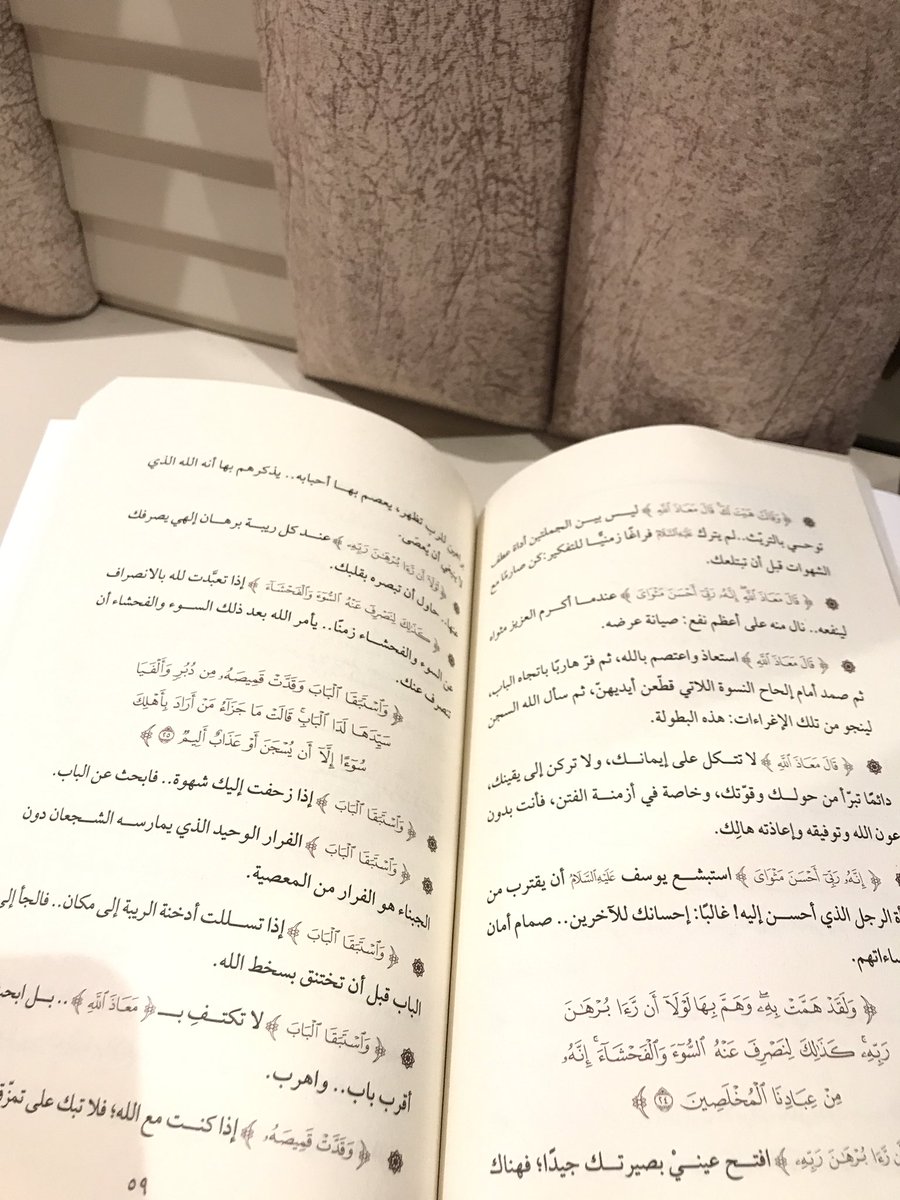 ﴿ وَقَالَتْ هَيْتَ لَكَ قَالَ مَعَاذَ ٱللَّهِ ﴾ ليس بين الجملتين أداة عطف
توحي بالتريّث.. لم يترك عَلَيْهِ السَّلَامُ فراغًا زمنيًّا للتفكير: كن صارمًا مع
الشهوات قبل أن تبتلعك.
﴿ قَالَ مَعَاذَ ٱللَّهِ إِنَّهُۥ رَبِّىٓ أَحْسَنَ مَثْوَاىَ ﴾ عندما أكرم العزيز مثواه
لينفعه.. نال منه على أعظم نفع: صيانة عرضه.
﴿ قَالَ مَعَاذَ ٱللَّهِ ﴾ استعاذ واعتصم بالله، ثم فرّ هاربًا باتجاه الباب،
ثم صمد أمام إلحاح النسوة اللاتي قطّعن أيديهنّ، ثم سأل الله السجن
لينجو من تلك الإغراءات: هذه البطولة.
﴿ قَالَ مَعَاذَ ٱللَّهِ ﴾ لا تتكل على إيمانك، ولا تركن إلى يقينك،
دائمًا تبرّأ من حولك وقوّتك، وخاصة في أزمنة الفتن، فأنت بدون
عون الله وتوفيقه وإعاذته هالِك.
﴿ إِنَّهُۥ رَبِّىٓ أَحْسَنَ مَثْوَاىَ ﴾ استبشع يوسف عَلَيْهِ السَّلَامُ أن يقترب من
الرجل الذي أحسن إليه! غالبًا: إحسانك للآخرين.. صمام أمان
﴿ وَلَقَدْ هَمَّتْ بِهِۦ وَهَمَّ بِهَا لَوْلَآ أَن رَّءَا بُرْهَٰنَ
رَبِّهِۦ كَذَٰلِكَ لِنَصْرِفَ عَنْهُ ٱلسُّوٓءَ وَٱلْفَحْشَآءَ إِنَّهُۥ
مِنْ عِبَادِنَا ٱلْمُخْلَصِينَ ٢٤ ﴾
رَّءَا بُرْهَٰنَ رَبِّهِۦ ﴾ افتح عينيْ بصيرتك جيدًا؛ فهناك
للرب تظهر، يعصم بها أحبابه.. يذكرهم بها أنه الله الذي
لا ينبغي أن يُعصَى.
﴿ لَوْلَآ أَن رَّءَا بُرْهَٰنَ رَبِّهِۦ ﴾ عند كل ريبة برهان إلهي يصرفك
عنها.. حاول أن تبصره بقلبك.
﴿ كَذَٰلِكَ لِنَصْرِفَ عَنْهُ ٱلسُّوٓءَ وَٱلْفَحْشَآءَ ﴾ إذا تعبَّدت لله بالانصراف
عن السوء والفحشاء زمنًا.. يأمر الله بعد ذلك السوء والفحشاء أن
تنصرف عنك.
﴿ وَٱسْتَبَقَا ٱلْبَابَ وَقَدَّتْ قَمِيصَهُۥ مِن دُبُرٍ وَأَلْفَيَا
سَيِّدَهَا لَدَا ٱلْبَابِ قَالَتْ مَا جَزَآءُ مَنْ أَرَادَ بِأَهْلِكَ
سُوٓءًا إِلَّآ أَن يُسْجَنَ أَوْ عَذَابٌ أَلِيمٌ ٢٥ ﴾
﴿ وَٱسْتَبَقَا ٱلْبَابَ ﴾ إذا زحفت إليك شهوة.. فابحث عن الباب.
﴿ وَٱسْتَبَقَا ٱلْبَابَ ﴾ الفرار الوحيد الذي يمارسه الشجعان دون
الجبناء هو الفرار من المعصية.
﴿ وَٱسْتَبَقَا ٱلْبَابَ ﴾ إذا تسللت أدخنة الريبة إلى مكان.. فالجأ إلى
الباب قبل أن تختنق بسخط الله.
﴿ وَٱسْتَبَقَا ٱلْبَابَ ﴾ لا تكتفِ بـ ﴿ مَعَاذَ ٱللَّهِ ﴾.. بل ابحث
أقرب باب.. واهرب.
﴿ وَقَدَّتْ قَمِيصَهُۥ ﴾ إذا كنت مع الله؛ فلا تبك على
٥٩